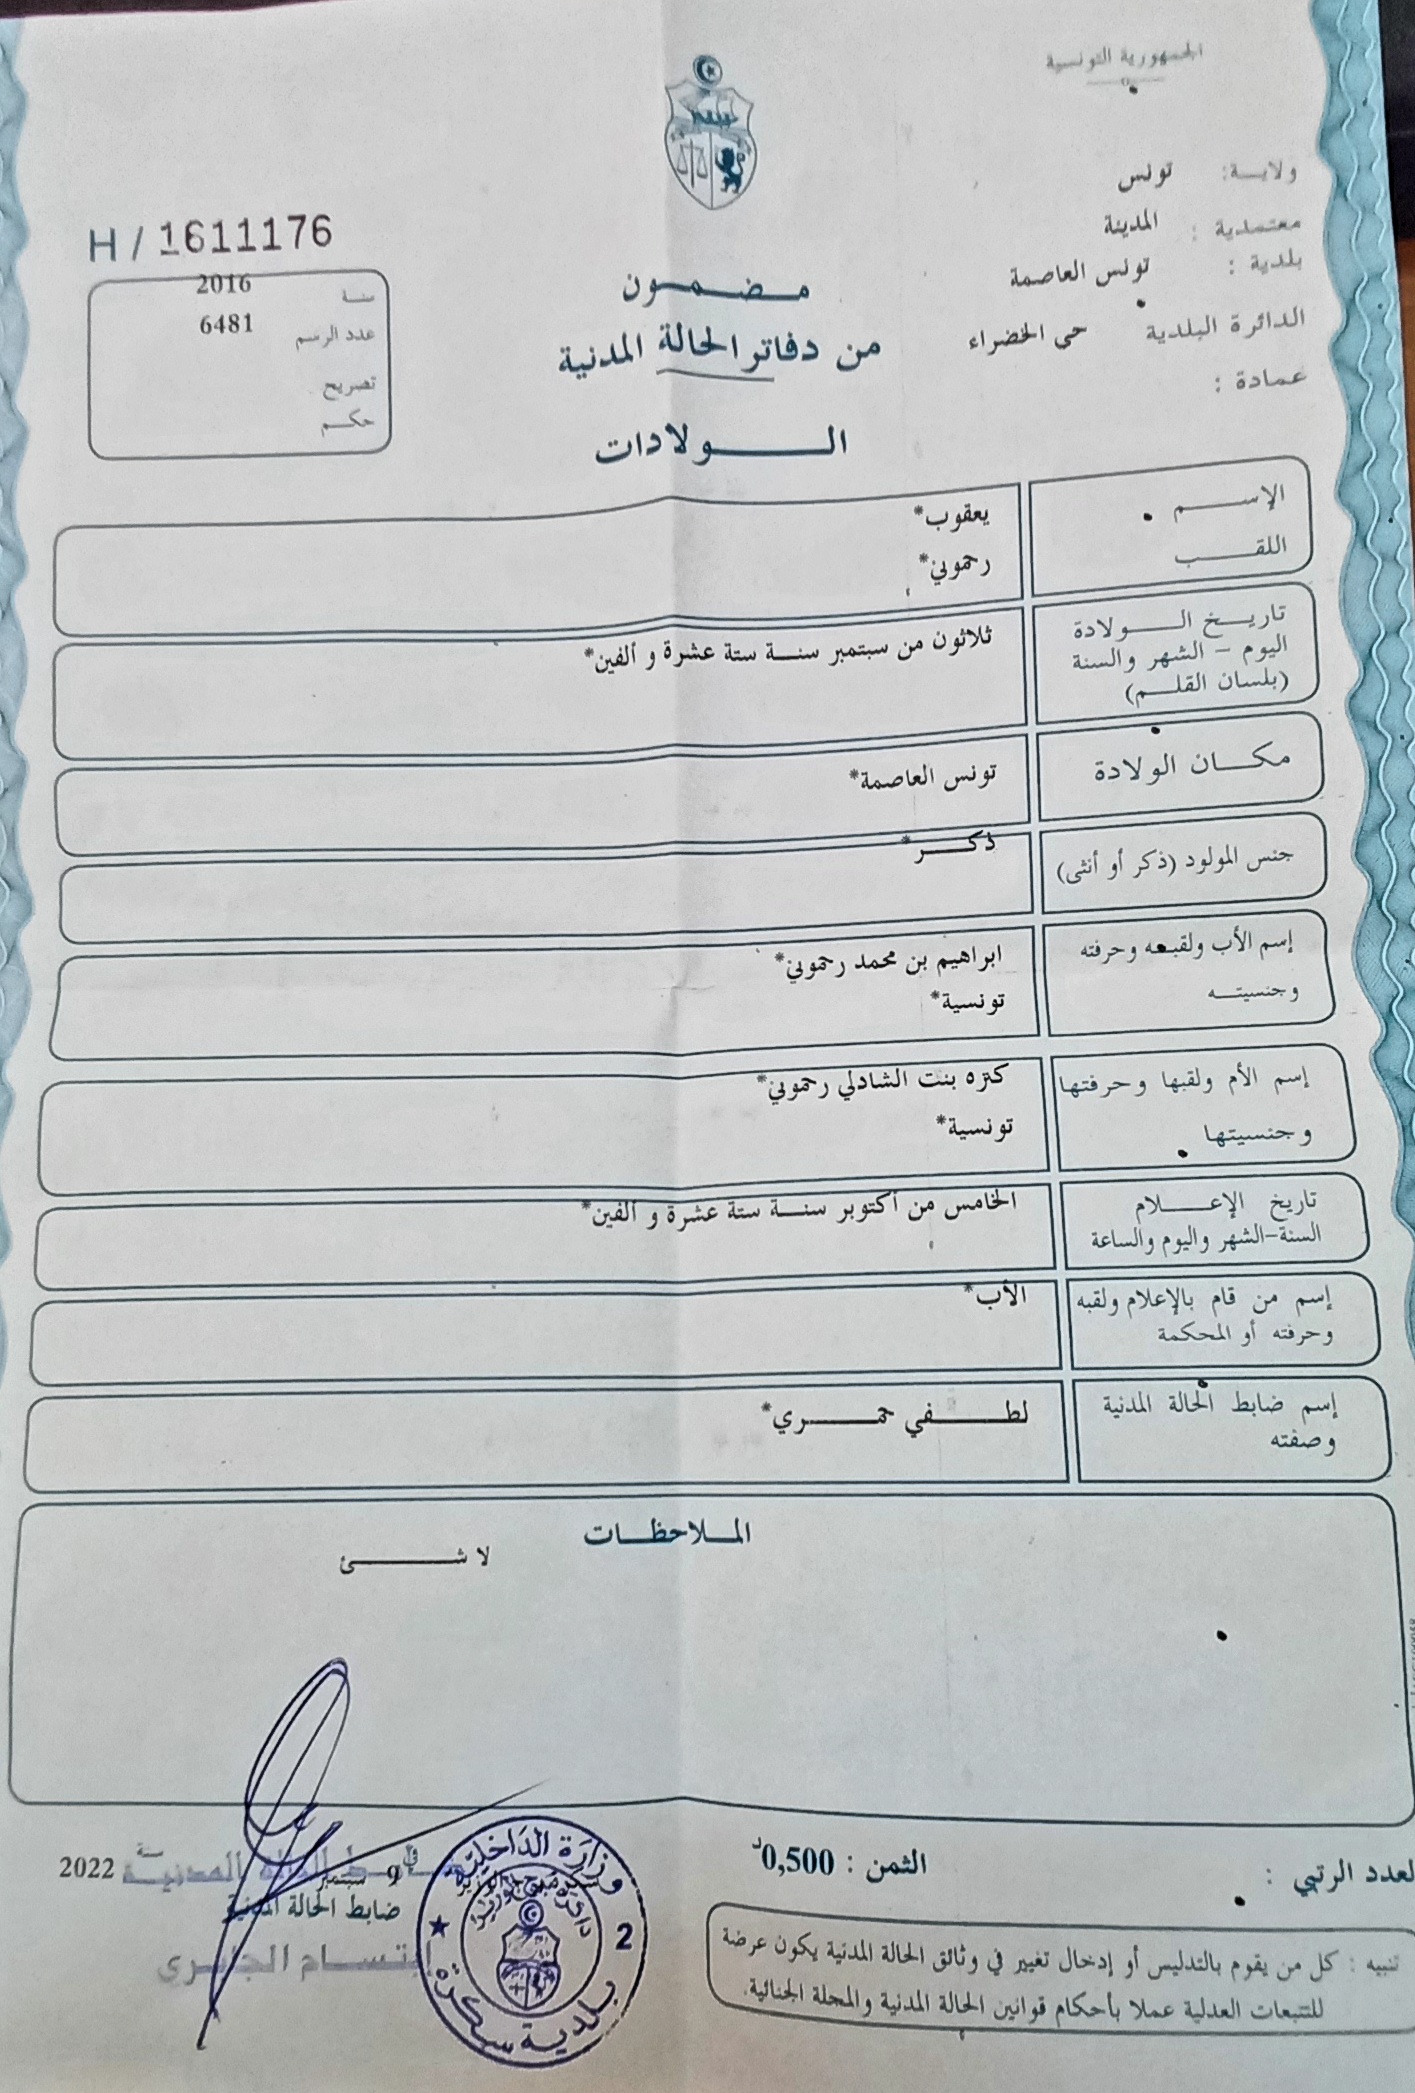 الجمهورية التونسية
ولاية: تونس
معتمدية : المدينة
بلدية : تونس العاصمة
الدائرة البلدية حي الخضراء
عمادة :
H / 1611176
سنة 2016
عدد الرسم 6481
تصريح
حكم
مضمون
من دفاتر الحالة المدنية
الولادات
الإسم يعقوب*
اللقب رحموني*
تاريخ الولادة ثلاثون من سبتمبر سنة ستة عشرة و ألفين*
اليوم - الشهر والسنة
(بلسان القلم)
مكان الولادة تونس العاصمة*
جنس المولود (ذكر أو أنثى) ذكر*
إسم الأب ولقبه وحرفته ابراهيم بن محمد رحموني*
وجنسيته تونسية*
إسم الأم ولقبها وحرفتها كنزه بنت الشادلي رحموني*
وجنسيتها تونسية*
تاريخ الإعلام الخامس من أكتوبر سنة ستة عشرة و ألفين*
السنة-الشهر واليوم والساعة
إسم من قام بالإعلام ولقبه الأب*
وحرفته أو المحكمة
إسم ضابط الحالة المدنية لطفي حمري*
وصفته
الملاحظات
لا شئ
لعدد الرتبي :
الثمن : 0,500د
في 9 سبتمبر سنة 2022
ضابط الحالة المدنية
ضابط الحالة المدنية
إبتسام
وزارة الداخلية
بلدية سكرة
2
تنبيه : كل من يقوم بالتدليس أو إدخال تغيير في وثائق الحالة المدنية يكون عرضة
للتتبعات العدلية عملا بأحكام قوانين الحالة المدنية والمجلة الجنائية.